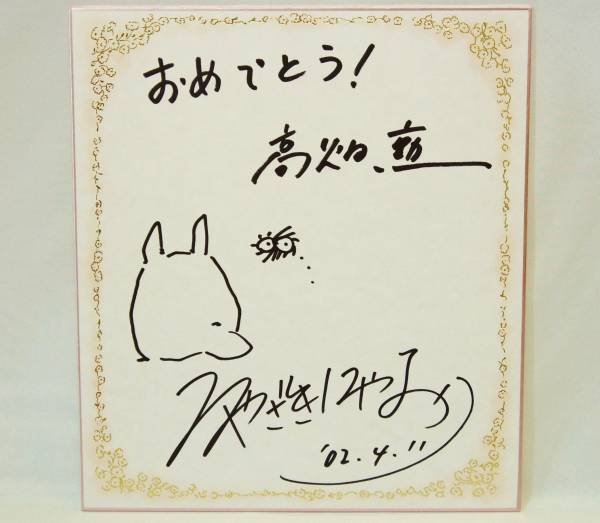 おめでとう!
高畑、勲
みやざきはやお
'02.4.11